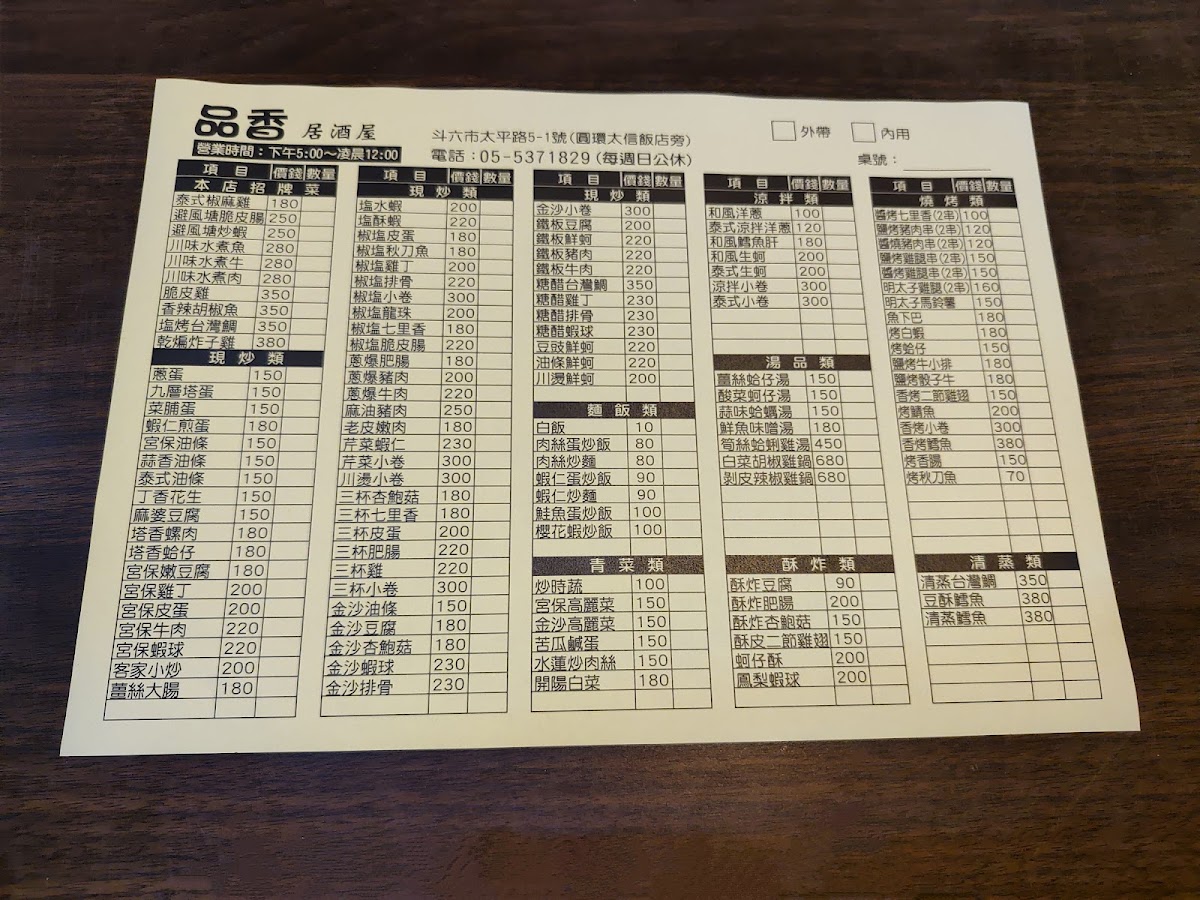 品香 居酒屋
營業時間：下午5:00～凌晨12:00
斗六市太平路5-1號(圓環太信飯店旁)
電話：05-5371829 (每週日公休)
外帶 內用
桌號：
項目 價錢 數量
本店招牌菜
泰式椒麻雞 180
避風塘脆皮腸 250
避風塘炒蝦 250
川味水煮魚 280
川味水煮牛 280
川味水煮肉 280
脆皮雞 350
香辣胡椒魚 350
塩烤台灣鯛 350
乾煸炸子雞 380
現炒類
蔥蛋 150
九層塔蛋 150
菜脯蛋 150
蝦仁煎蛋 180
宮保油條 150
蒜香油條 150
泰式油條 150
丁香花生 150
麻婆豆腐 150
塔香螺肉 180
塔香蛤仔 180
宮保嫩豆腐 180
宮保雞丁 200
宮保皮蛋 200
宮保牛肉 220
宮保蝦球 220
客家小炒 200
薑絲大腸 180
項目 價錢 數量
現炒類
塩水蝦 200
塩酥蝦 220
椒塩皮蛋 180
椒塩秋刀魚 180
椒塩雞丁 200
椒塩排骨 220
椒塩小卷 300
椒塩龍珠 200
椒塩七里香 180
椒塩脆皮腸 220
蔥爆肥腸 180
蔥爆豬肉 200
蔥爆牛肉 220
麻油豬肉 250
老皮嫩肉 180
芹菜蝦仁 230
芹菜小卷 300
川燙小卷 300
三杯杏鮑菇 180
三杯七里香 180
三杯皮蛋 200
三杯肥腸 220
三杯雞 220
三杯小卷 300
金沙油條 150
金沙豆腐 180
金沙杏鮑菇 180
金沙蝦球 230
金沙排骨 230
項目 價錢 數量
現炒類
金沙小卷 300
鐵板豆腐 200
鐵板鮮蚵 220
鐵板豬肉 220
鐵板牛肉 220
糖醋台灣鯛 350
糖醋雞丁 230
糖醋排骨 230
糖醋蝦球 230
豆豉鮮蚵 220
油條鮮蚵 220
川燙鮮蚵 200
麵飯類
白飯 10
肉絲蛋炒飯 80
肉絲炒麵 80
蝦仁蛋炒飯 90
蝦仁炒麵 90
鮭魚蛋炒飯 100
櫻花蝦炒飯 100
青菜類
炒時蔬 100
宮保高麗菜 150
金沙高麗菜 150
苦瓜鹹蛋 150
水蓮炒肉絲 150
開陽白菜 180
項目 價錢 數量
涼拌類
和風洋蔥 100
泰式涼拌洋蔥 120
和風鱈魚肝 180
和風生蚵 200
泰式生蚵 200
涼拌小卷 300
泰式小卷 300
湯品類
薑絲蛤仔湯 150
酸菜蚵仔湯 150
蒜味蛤蠣湯 150
鮮魚味噌湯 180
筍絲蛤蜊雞湯 450
白菜胡椒雞鍋 680
剝皮辣椒雞鍋 680
酥炸類
酥炸豆腐 90
酥炸肥腸 200
酥炸杏鮑菇 150
酥皮二節雞翅 150
蚵仔酥 200
鳳梨蝦球 200
項目 價錢 數量
燒烤類
醬烤七里香(2串) 100
鹽烤豬肉串(2串) 120
醬燒豬肉串(2串) 120
鹽烤雞腿串(2串) 150
醬烤雞腿串(2串) 150
明太子雞腿(2串) 160
明太子馬鈴薯 150
魚下巴 180
烤白蝦 180
烤蛤仔 150
鹽烤牛小排 180
鹽烤骰子牛 180
香烤二節雞翅 150
烤鯖魚 200
香烤小卷 300
香烤鱈魚 380
烤香腸 150
烤秋刀魚 70
清蒸類
清蒸台灣鯛 350
豆酥鱈魚 380
清蒸鱈魚 380